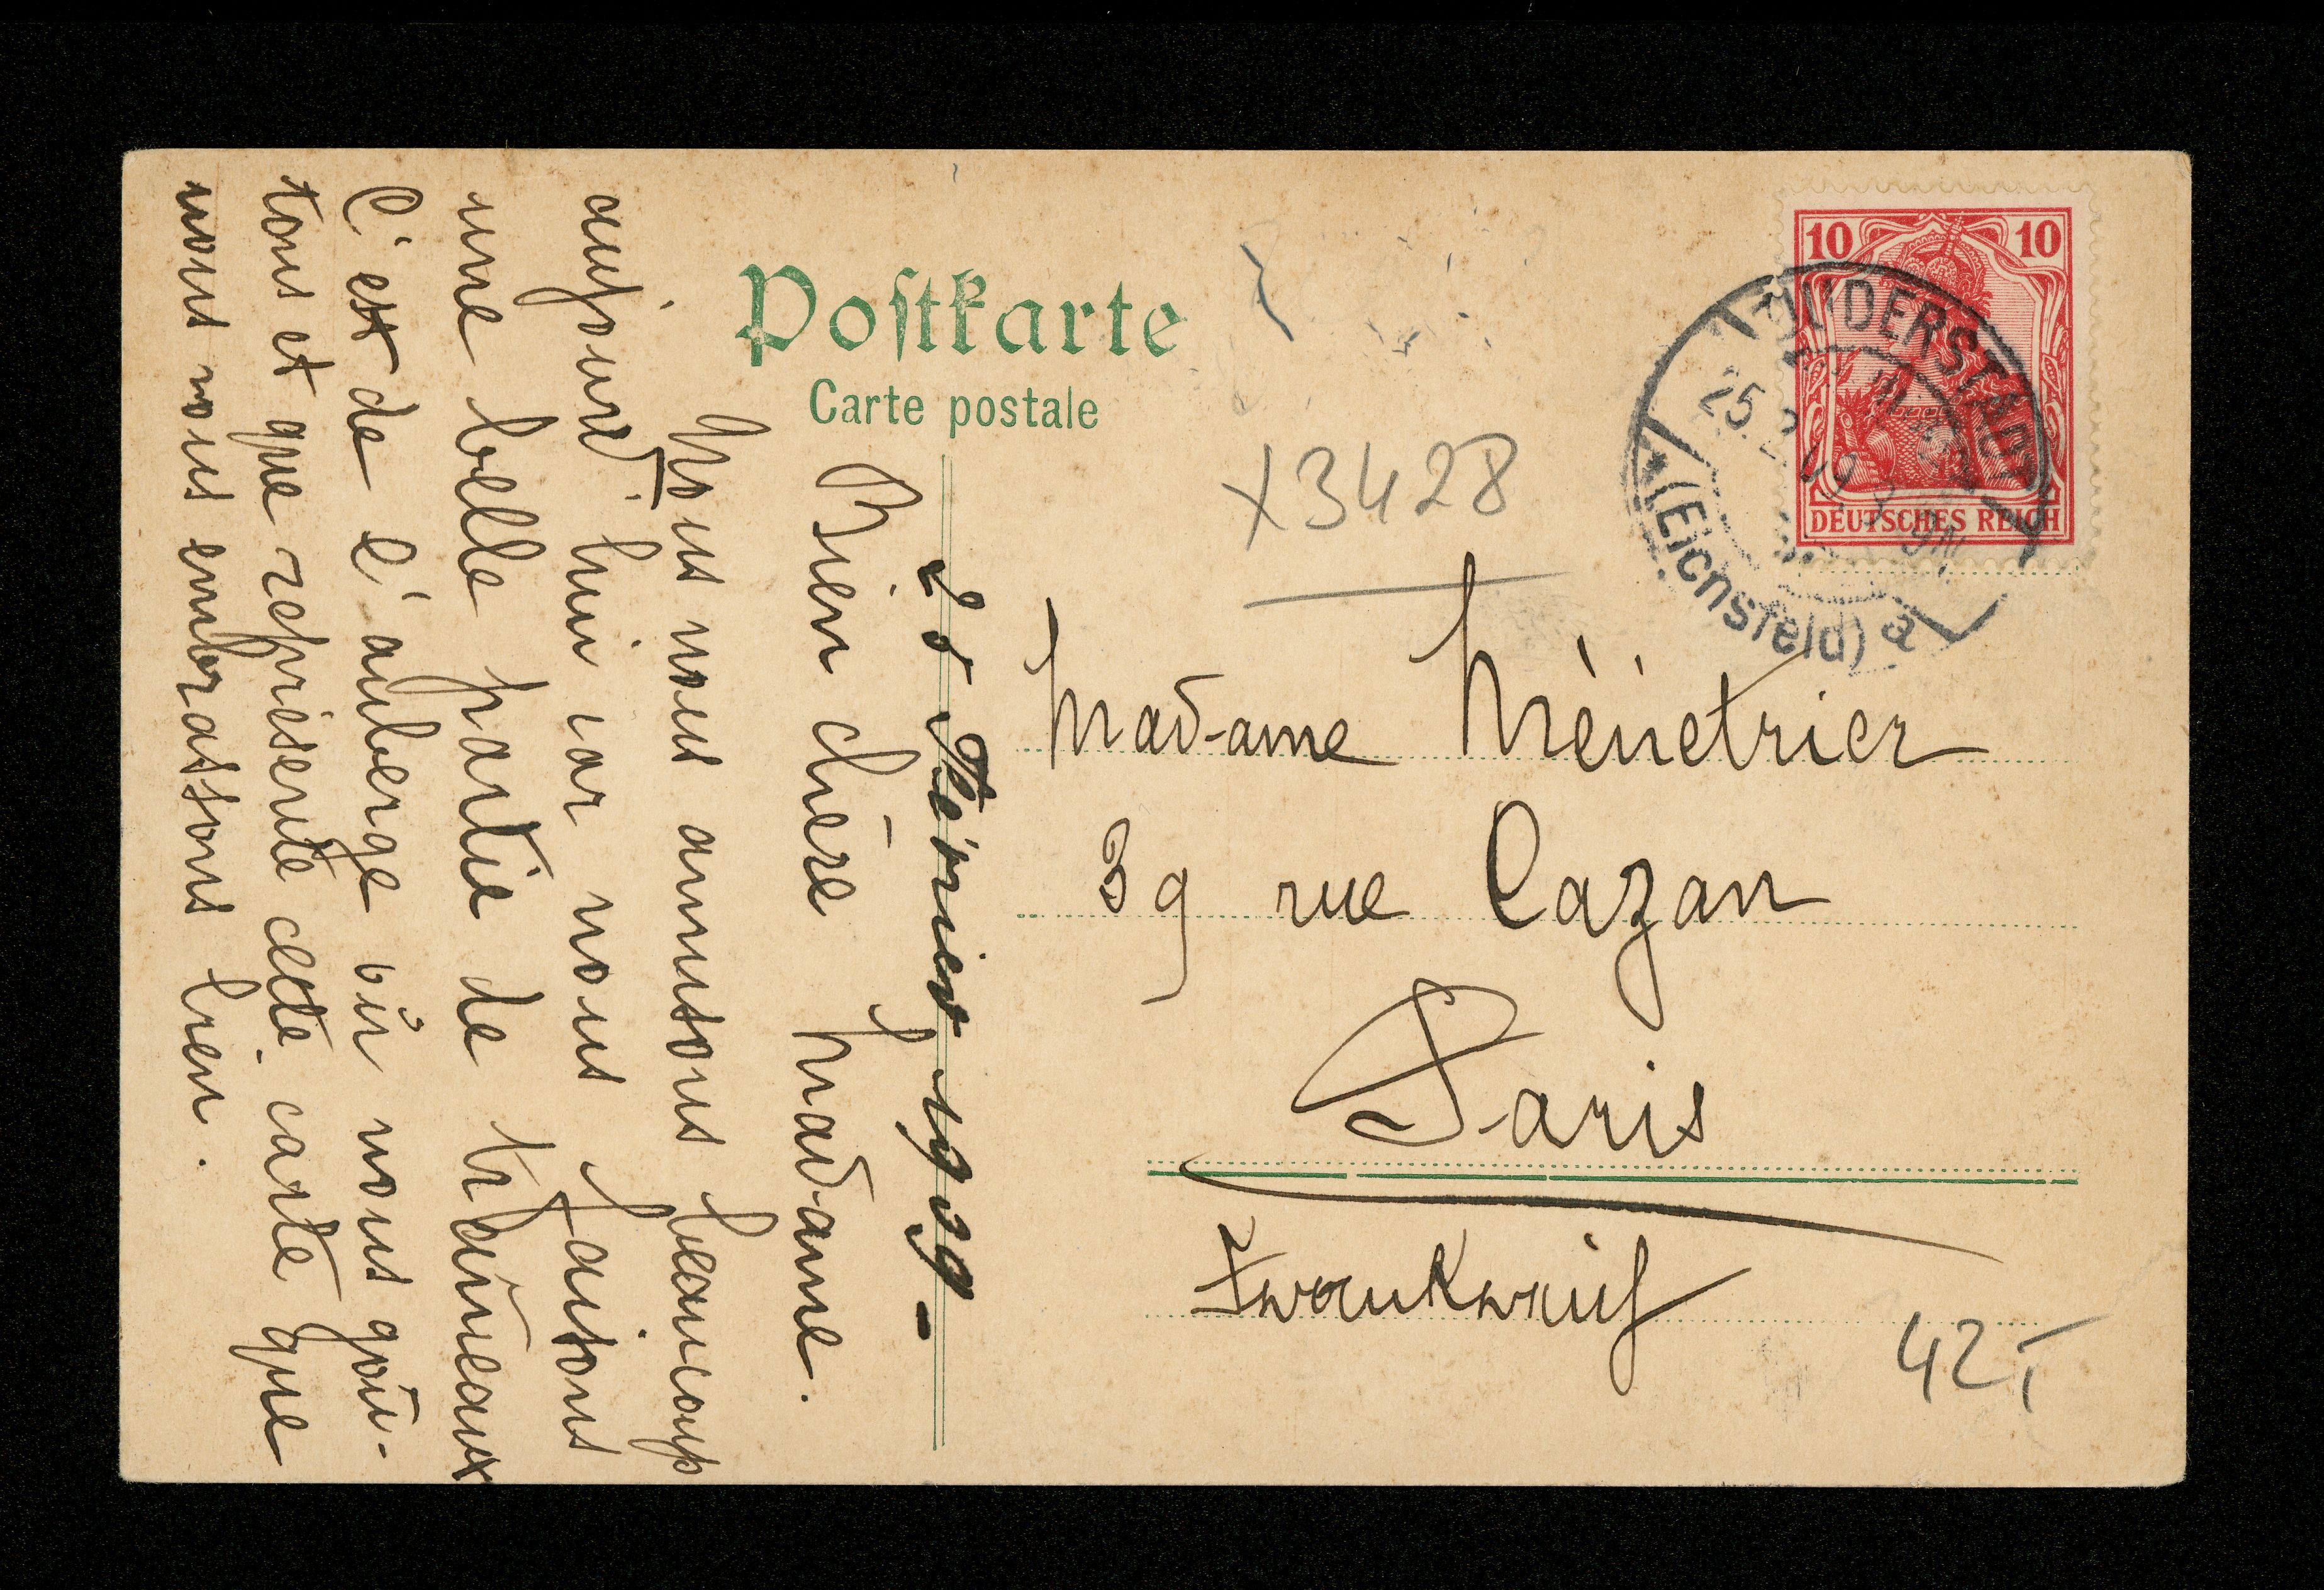 Postkarte
Carte postale
10 10
DEUTSCHES REICH
DUDERSTADT
25.2.09. 3-4N.
* (Eichsfeld) a
X3428
25 Février 1909-
Bien chère Madame.
Nous nous amusons beaucoup
aujourd'hui car nous faisons
une belle partie de traîneaux
C'est de l'auberge où nous goû-
tons et que représente cette carte que
nous vous embrassons bien.
Madame Ménetrier
39 rue Cazan
Paris
Frankreich
42